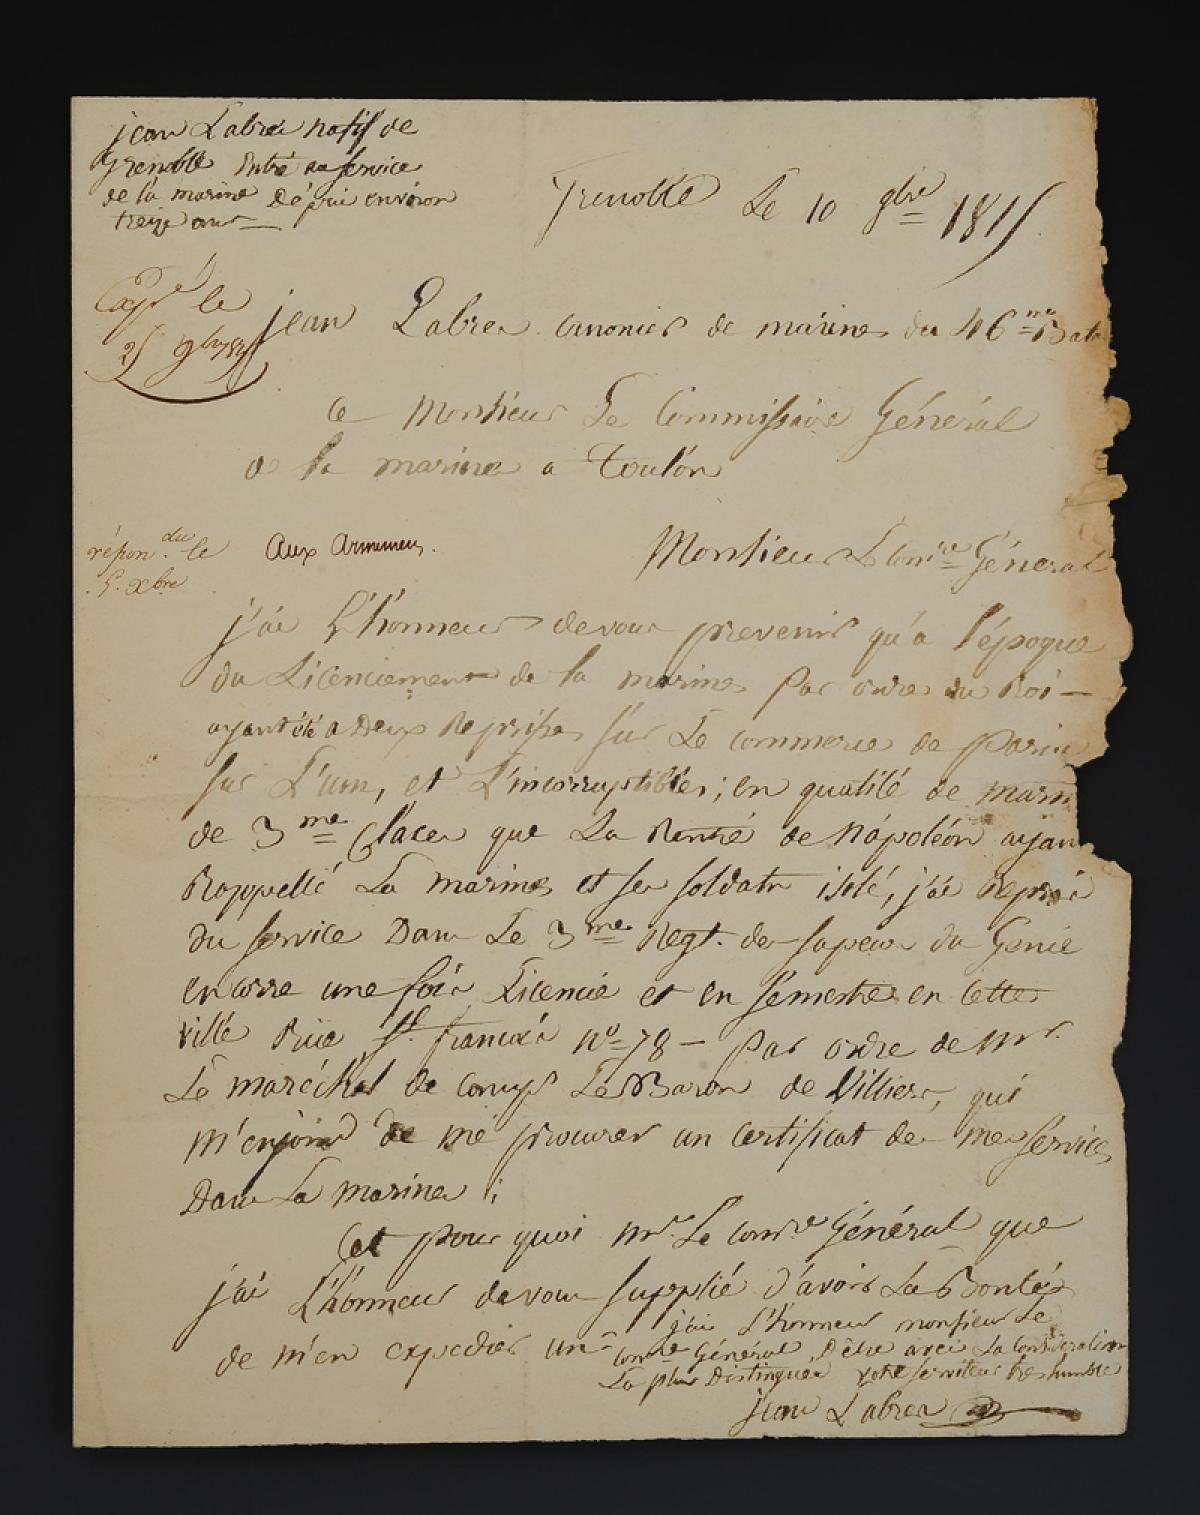 jean Labrea natif de
Grenoble Entré au service
de la marine Dépui environ
treize ans
Grenoble Le 10 9bre 1815
Expé le
25 9bre
jean Labrea canonier de marine du 46me Bat
a Monsieur Le Commissaire Général
de la marine a Toulon
répondu le
5. Xbre
Aux Armemens.
Monsieur Le Comre Géneral
j'ai L'honneur de vous prevenir qu'a l'époque
du Licenciement de la marine par ordre du Roi —
ayant été a Deux Reprises sur Le commerce de
sur L'un, et L'incorruptible; en qualité de marin
de 3me Classe que La Rentré de Nápoléon ayan
Rappellé La marine et ses soldats isolé, j'ai Repris
du service Dans Le 3me Regt. de sapeurs du Genie
encorre une fois Licencié et en sémestre en cette
ville Rüe St. francois No 78 — par ordre de Mr.
Le maréchal de camps Le Baron de Villiers, qui
m'enjoind de me procurer un certificat de mes services
Dans La marine;
Cet pour quoi Mr. Le Comre Général que
j'ai L'honneur de vous supplié d'avoir La Bontés
de m'en expedier un
j'ai L'honneur monsieur Le
Comre Général D'être avec La Considération
La plus Distinguée votre serviteur tres humble
jean Labrea